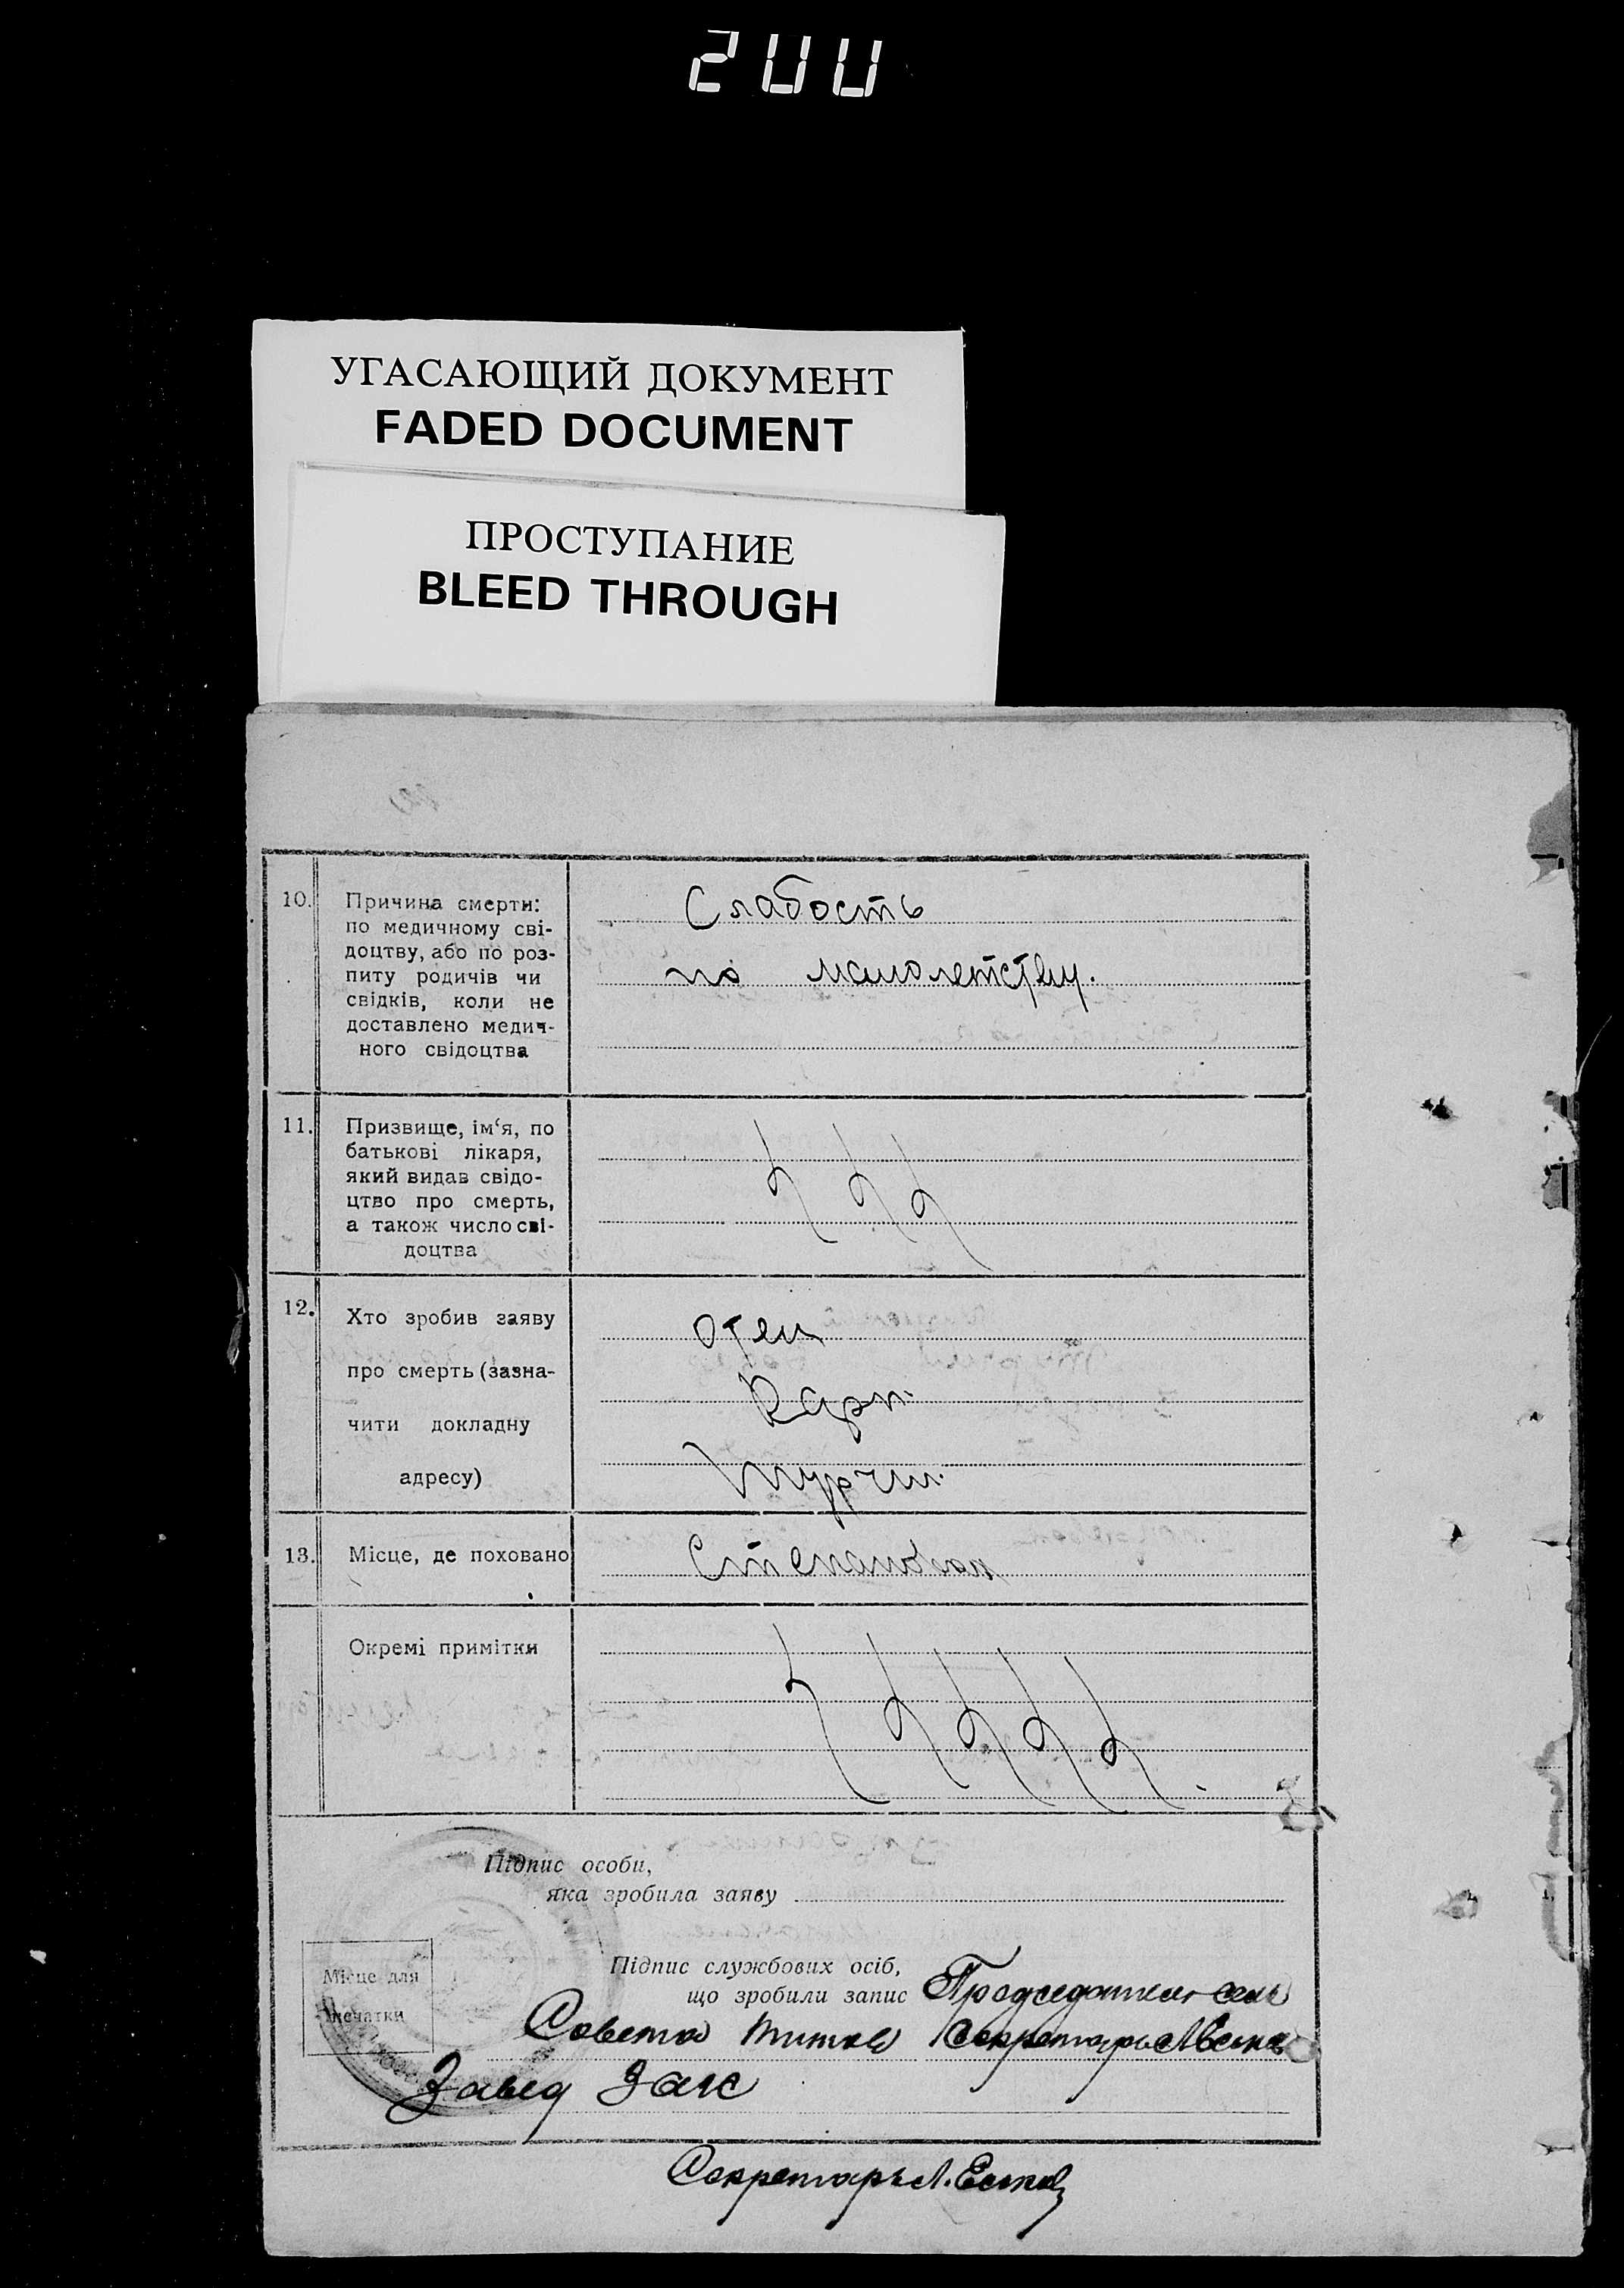 200
УГАСАЮЩИЙ ДОКУМЕНТ
FADED DOCUMENT
ПРОСТУПАНИЕ
BLEED THROUGH
10.
Причина смерти:
по медичному сві-
доцтву, або по роз-
питу родичів чи
свідків, коли не
доставлено медич-
ного свідоцтва
Слабость
по малолетству.
11.
Призвище, ім‘я, по
батькові лікаря,
який видав свідо-
цтво про смерть,
а також число сві-
доцтва
12.
Хто зробив заяву
про смерть (зазна-
чити докладну
адресу)
Отец
Карп
Турчин
13.
Місце, де поховано
Окремі примітки
Підпис особи,
яка зробила заяву
Підпис службових осіб,
що зробили запис
Председатель сель
Совета Титов Секретарь
Завед Загс
Місце для
печатки
Секретарь